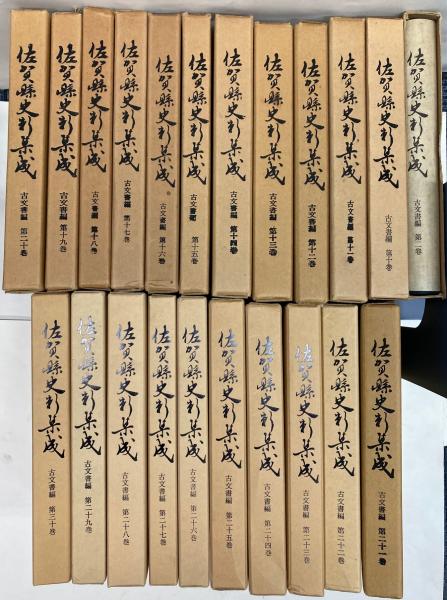 佐賀縣史料集成 古文書編 第二巻
佐賀縣史料集成 古文書編 第十巻
佐賀縣史料集成 古文書編 第十一巻
佐賀縣史料集成 古文書編 第十二巻
佐賀縣史料集成 古文書編 第十三巻
佐賀縣史料集成 古文書編 第十四巻
佐賀縣史料集成 古文書編 第十五巻
佐賀縣史料集成 古文書編 第十六巻
佐賀縣史料集成 古文書編 第十七巻
佐賀縣史料集成 古文書編 第十八巻
佐賀縣史料集成 古文書編 第十九巻
佐賀縣史料集成 古文書編 第二十巻
佐賀縣史料集成 古文書編 第二十一巻
佐賀縣史料集成 古文書編 第二十二巻
佐賀縣史料集成 古文書編 第二十三巻
佐賀縣史料集成 古文書編 第二十四巻
佐賀縣史料集成 古文書編 第二十五巻
佐賀縣史料集成 古文書編 第二十六巻
佐賀縣史料集成 古文書編 第二十七巻
佐賀縣史料集成 古文書編 第二十八巻
佐賀縣史料集成 古文書編 第二十九巻
佐賀縣史料集成 古文書編 第三十巻